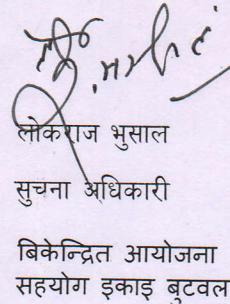 लोकराज भुसाल
सुचना अधिकारी
बिकेन्द्रित आयोजना
सहयोग इकाइ बुटवल